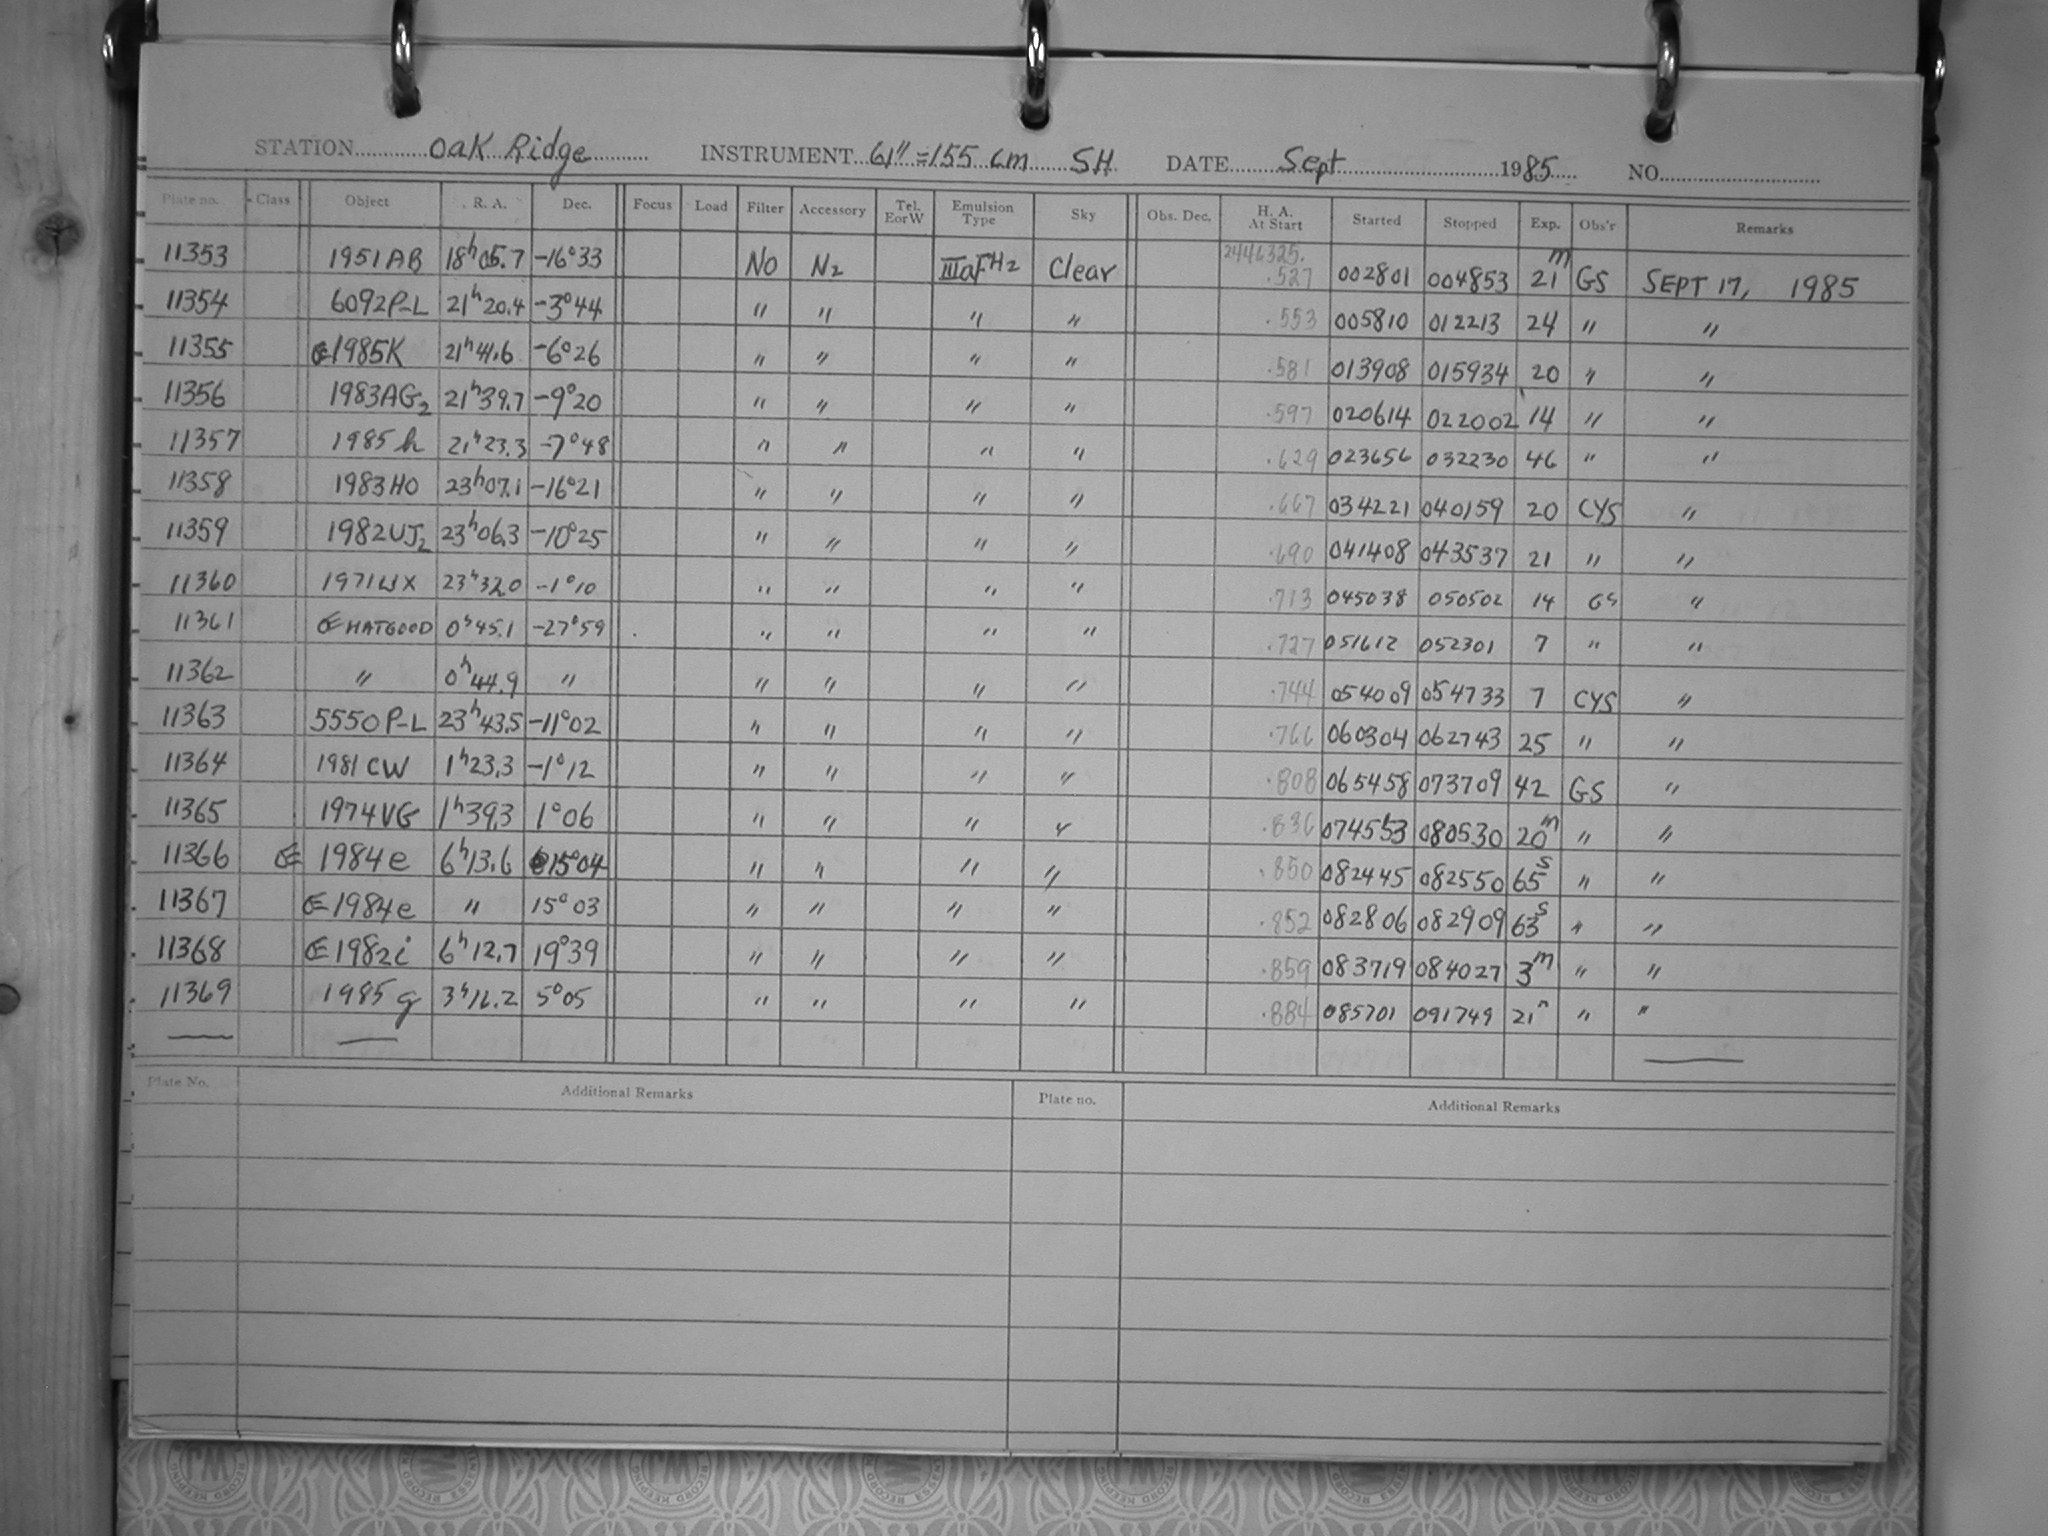 STATION Oak Ridge INSTRUMENT 61"=155 cm SH DATE Sept 1985 NO.
Plate no. Class Object R. A. Dec. Focus Load Filter Accessory Tel. E or W Emulsion Type Sky Obs. Dec. H. A. At Start Started Stopped Exp. Obs'r Remarks
11353 1951AB 18h05.7 -16°33 NO N2 IIIaF H2 Clear 2446325. .527 002801 004853 21m GS SEPT 17, 1985
11354 6092P-L 21h20.4 -3°44 " " " " .553 005810 012213 24 " "
11355 1985K 21h41.6 -6°26 " " " " .581 013908 015934 20 " "
11356 1983AG2 21h39.7 -9°20 " " " " .597 020614 022002 14 " "
11357 1985h 21h23.3 -7°48 " " " " .629 023656 032230 46 " "
11358 1983HO 23h07.1 -16°21 " " " " .667 034221 040159 20 CYS "
11359 1982UJ2 23h06.3 -10°25 " " " " .690 041408 043537 21 " "
11360 1971UX 23h32.0 -1°10 " " " " .713 045038 050502 14 GS "
11361 HATGOOD 0h45.1 -27°59 " " " " .727 051612 052301 7 " "
11362 " 0h44.9 " " " " " .744 054009 054733 7 CYS "
11363 5550P-L 23h43.5 -11°02 " " " " .766 060304 062743 25 " "
11364 1981CW 1h23.3 -1°12 " " " " .808 065458 073709 42 GS "
11365 1974VG 1h39.3 1°06 " " " " .836 074553 080530 20m " "
11366 1984e 6h13.6 15°04 " " " " .850 082445 082550 65s " "
11367 1984e " 15°03 " " " " .852 082806 082909 63s " "
11368 1982i 6h12.7 19°39 " " " " .859 083719 084027 3m " "
11369 1985g 3h16.2 5°05 " " " " .884 085701 091749 21m " "
Plate No. Additional Remarks Plate no. Additional Remarks